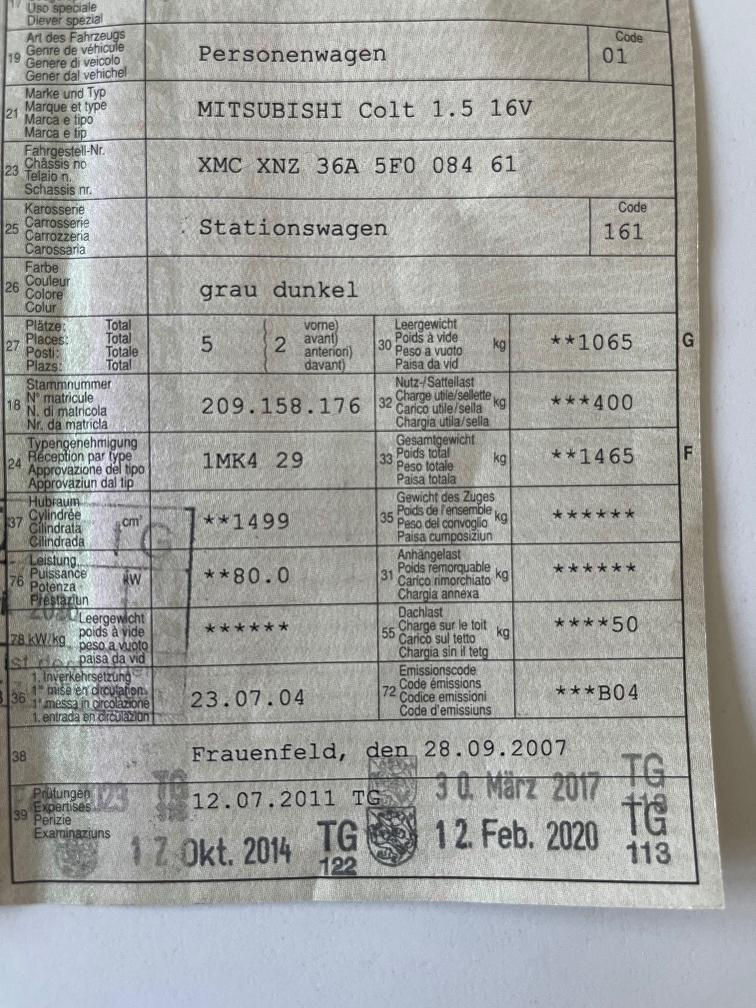 17 Uso speciale
Diever spezial
19 Art des Fahrzeugs
Genre de véhicule
Genere di veicolo
Gener dal vehichel
Personenwagen
Code
01
21 Marke und Typ
Marque et type
Marca e tipo
Marca e tip
MITSUBISHI Colt 1.5 16V
23 Fahrgestell-Nr.
Châssis no
Telaio n.
Schassis nr.
XMC XNZ 36A 5F0 084 61
25 Karosserie
Carrosserie
Carrozzeria
Carossaria
Stationswagen
Code
161
26 Farbe
Couleur
Colore
Colur
grau dunkel
27 Plätze: Total
Places: Total
Posti: Totale
Plazs: Total
5 2 vorne)
avant)
anteriori)
davant)
30 Leergewicht
Poids à vide
Peso a vuoto
Paisa da vid
kg
**1065
G
18 Stammnummer
N° matricule
N. di matricola
Nr. da matricla
209.158.176
32 Nutz-/Sattellast
Charge utile/sellette
Carico utile/sella
Chargia utila/sella
kg
***400
24 Typengenehmigung
Réception par type
Approvazione del tipo
Approvaziun dal tip
1MK4 29
33 Gesamtgewicht
Poids total
Peso totale
Paisa totala
kg
**1465
F
37 Hubraum
Cylindrée
Cilindrata
Cilindrada
cm³
**1499
G
35 Gewicht des Zuges
Poids de l'ensemble
Peso del convoglio
Paisa cumposiziun
kg
******
76 Leistung
Puissance
Potenza
Prestaziun
kW
**80.0
31 Anhängelast
Poids remorquable
Carico rimorchiato
Chargia annexa
kg
******
78 kW/kg Leergewicht
poids à vide
peso a vuoto
paisa da vid
******
55 Dachlast
Charge sur le toit
Carico sul tetto
Chargia sin il tetg
kg
****50
36 1. Inverkehrsetzung
1re mise en circulation
1a messa in circolazione
1. entrada en circulaziun
23.07.04
72 Emissionscode
Code émissions
Codice emissioni
Code d'emissiuns
***B04
38 Frauenfeld, den 28.09.2007
39 Prüfungen
Expertises
Perizie
Examinaziuns
12.07.2011 TG
30. März 2017 TG
17. Okt. 2014 TG
122
12. Feb. 2020 TG
113